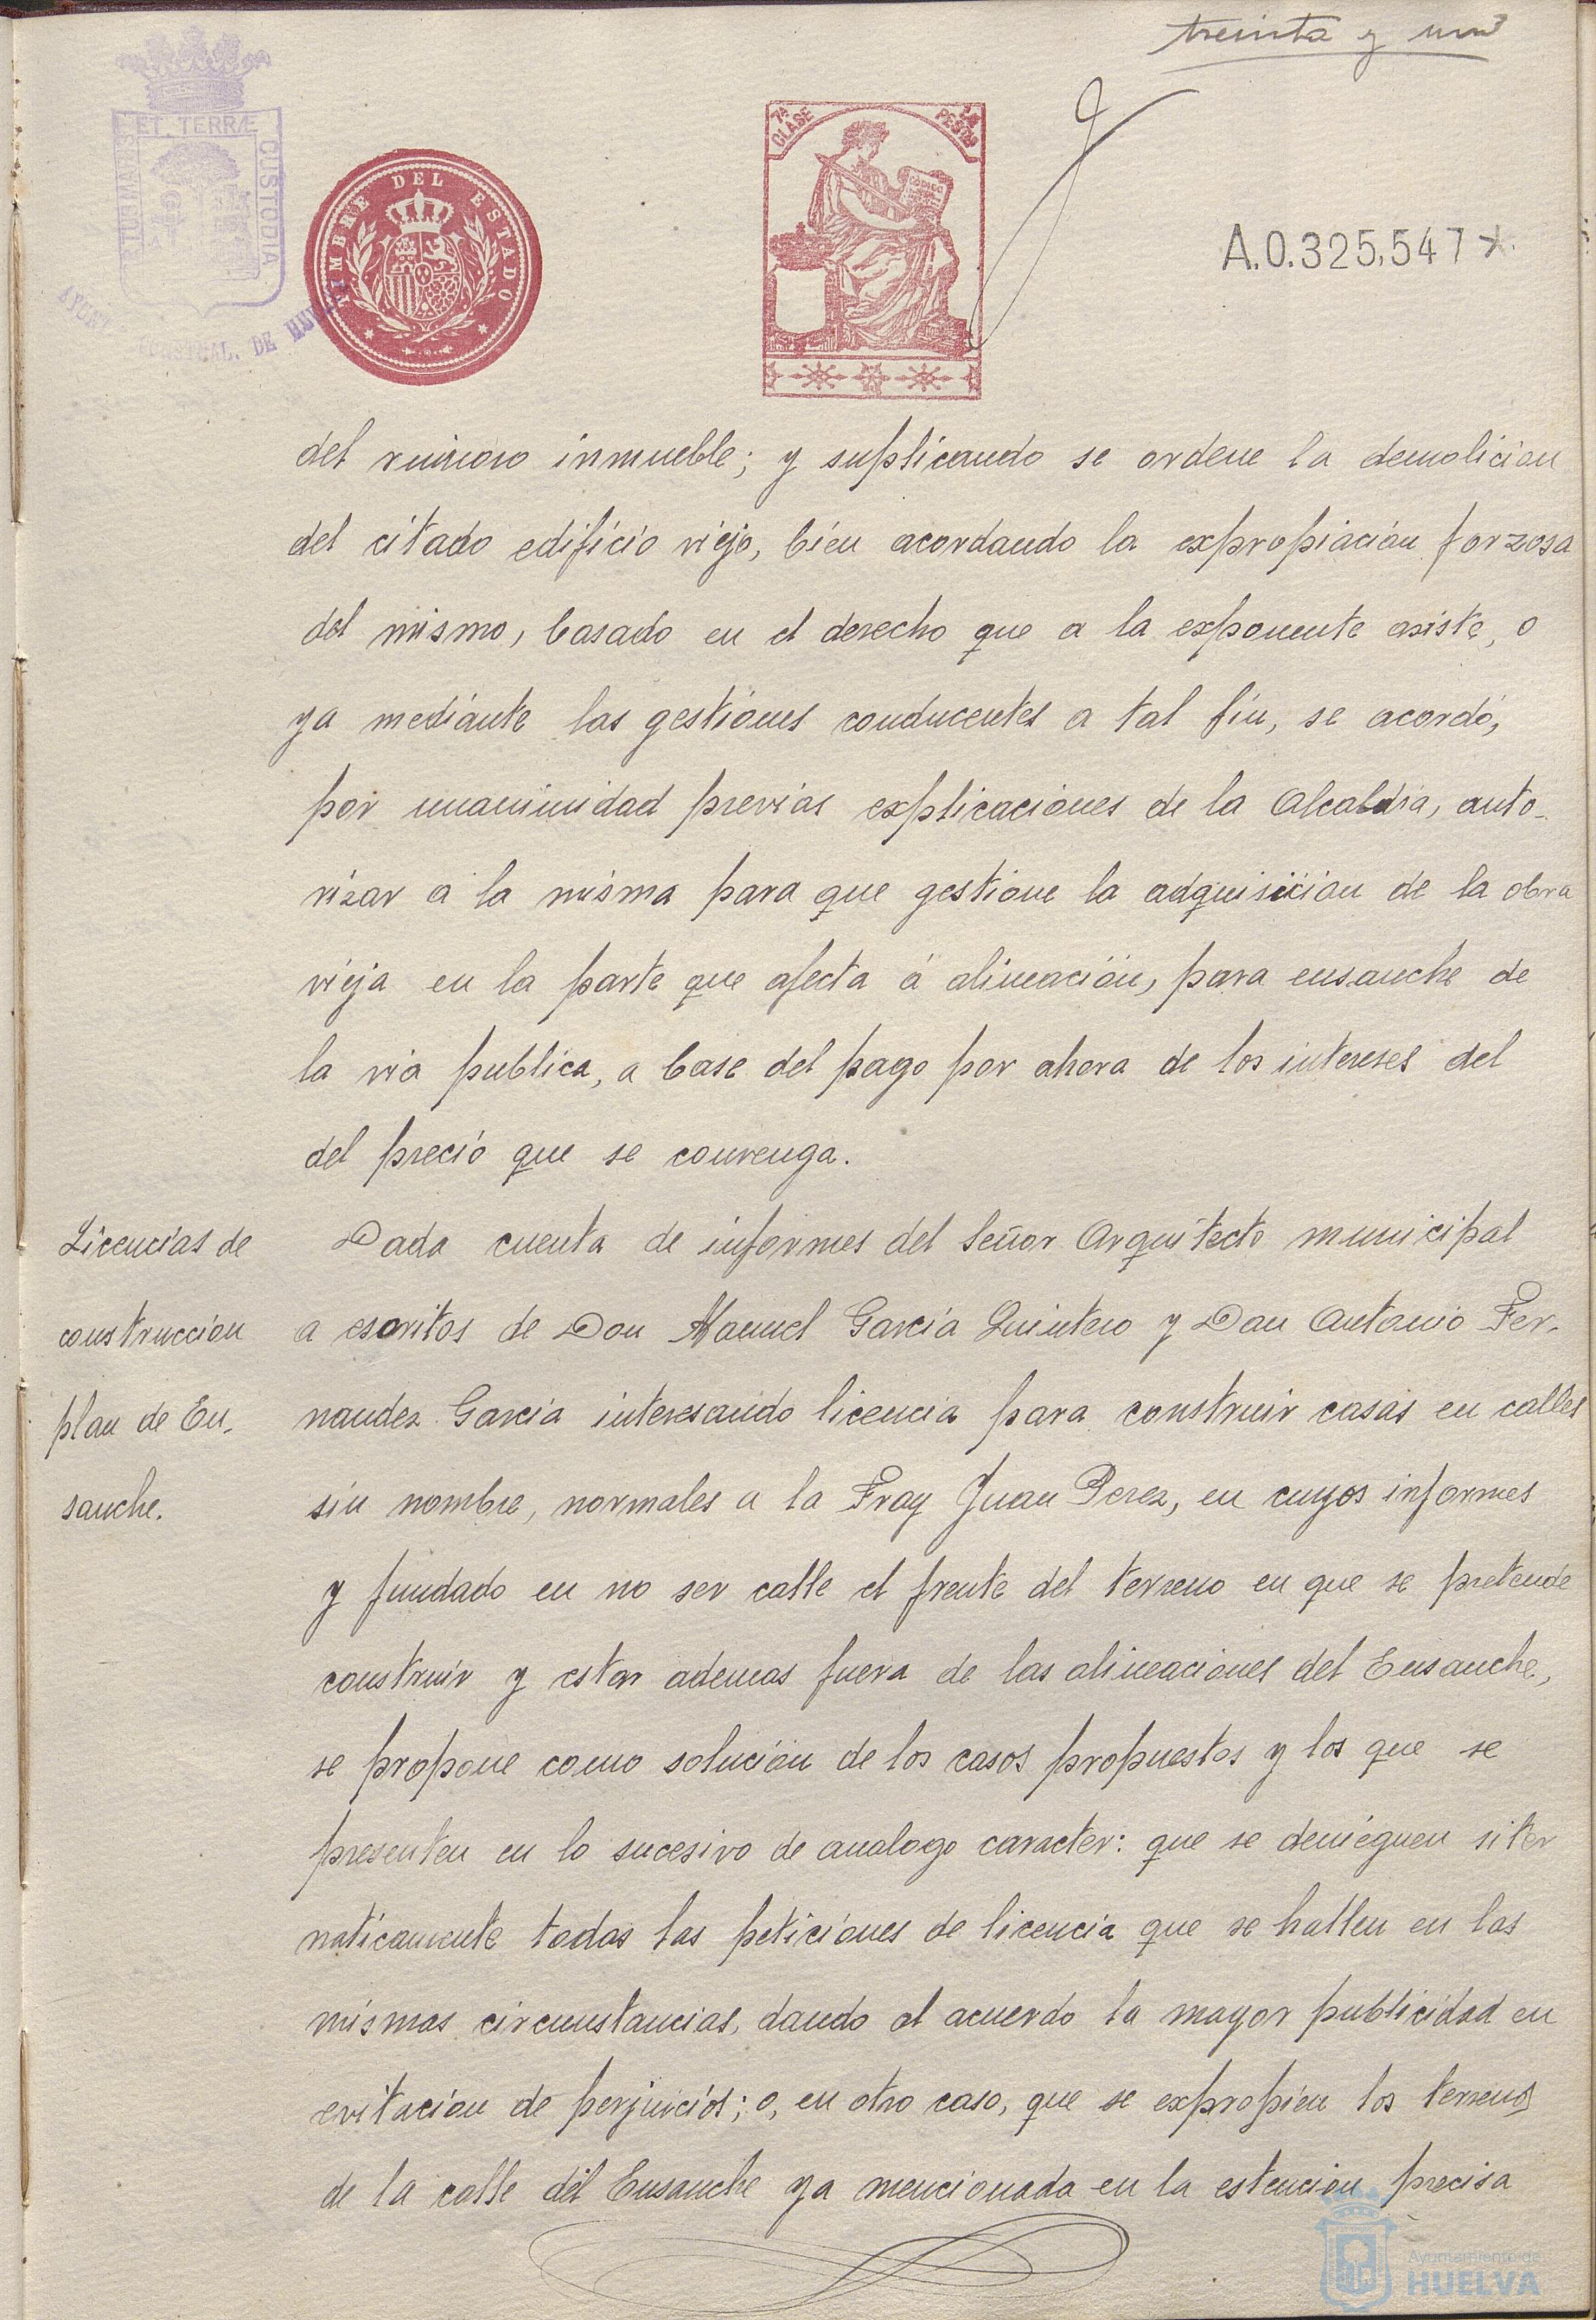 treinta y uno
ET TERRÆ
CUSTODIA
DE HUELVA
TIMBRE DEL ESTADO
7ª CLASE
PESTAS
CODIGO
A.0.325,547 *
del ruinoso inmueble; y suplicando se ordene la demolicion
del citado edificio viejo, bien acordando la expropiación forzosa
del mismo, basado en el derecho que a la exponente asiste, o
ya mediante las gestiones conducentes a tal fin, se acordó,
por unanimidad previas explicaciones de la Alcaldia, auto-
rizar a la misma para que gestione la adquisicion de la obra
vieja en la parte que afecta á alineación, para ensanche de
la via publica, a base del pago por ahora de los intereses del
del precio que se convenga.
Licencias de
construccion
plan de En-
sanche.
Dada cuenta de informes del Señor Arquitecto municipal
a escritos de Don Manuel Garcia Quintero y Don Antonio Fer-
nandez Garcia interesando licencia para construir casas en calles
sin nombre, normales a la Fray Juan Perez, en cuyos informes
y fundado en no ser calle el frente del terreno en que se pretende
construir y estar ademas fuera de las alineaciones del Ensanche,
se propone como solución de los casos propuestos y los que se
presenten en lo sucesivo de analogo caracter: que se denieguen site
maticamente todas las peticiones de licencia que se hallen en las
mismas circunstancias, dando al acuerdo la mayor publicidad en
evitacion de perjuicios; o, en otro caso, que se expropien los terrenos
de la calle del Ensanche ya mencionada en la estencion precisa
Ayuntamiento de
HUELVA